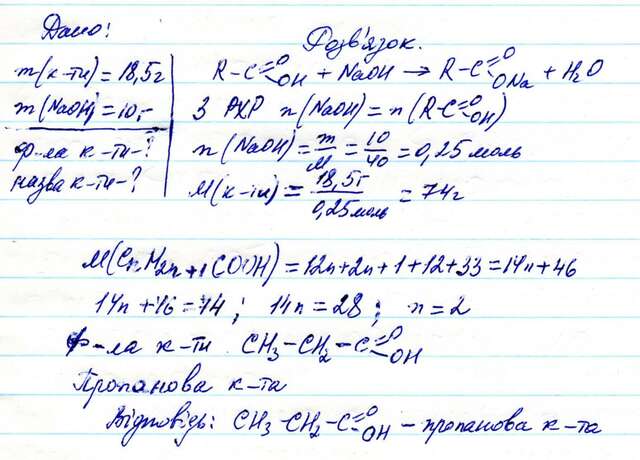 Дано:
m(к-ти)=18,5г
m(NaOH)=10,-
ф-ла к-ти-?
назва к-ти-?
Розв'язок.
R-C=O OH + NaOH → R-C=O ONa + H2O
З РХР n(NaOH) = n(R-C=O OH)
n(NaOH) = m/M = 10/40 = 0,25 моль
M(к-ти) = 18,5г/0,25моль = 74г
M(CnH2n+1COOH) = 12n+2n+1+12+33=14n+46
14n+46=74; 14n=28; n=2
Ф-ла к-ти CH3-CH2-C=O OH
Пропанова к-та
Відповідь: CH3-CH2-C=O OH - пропанова к-та